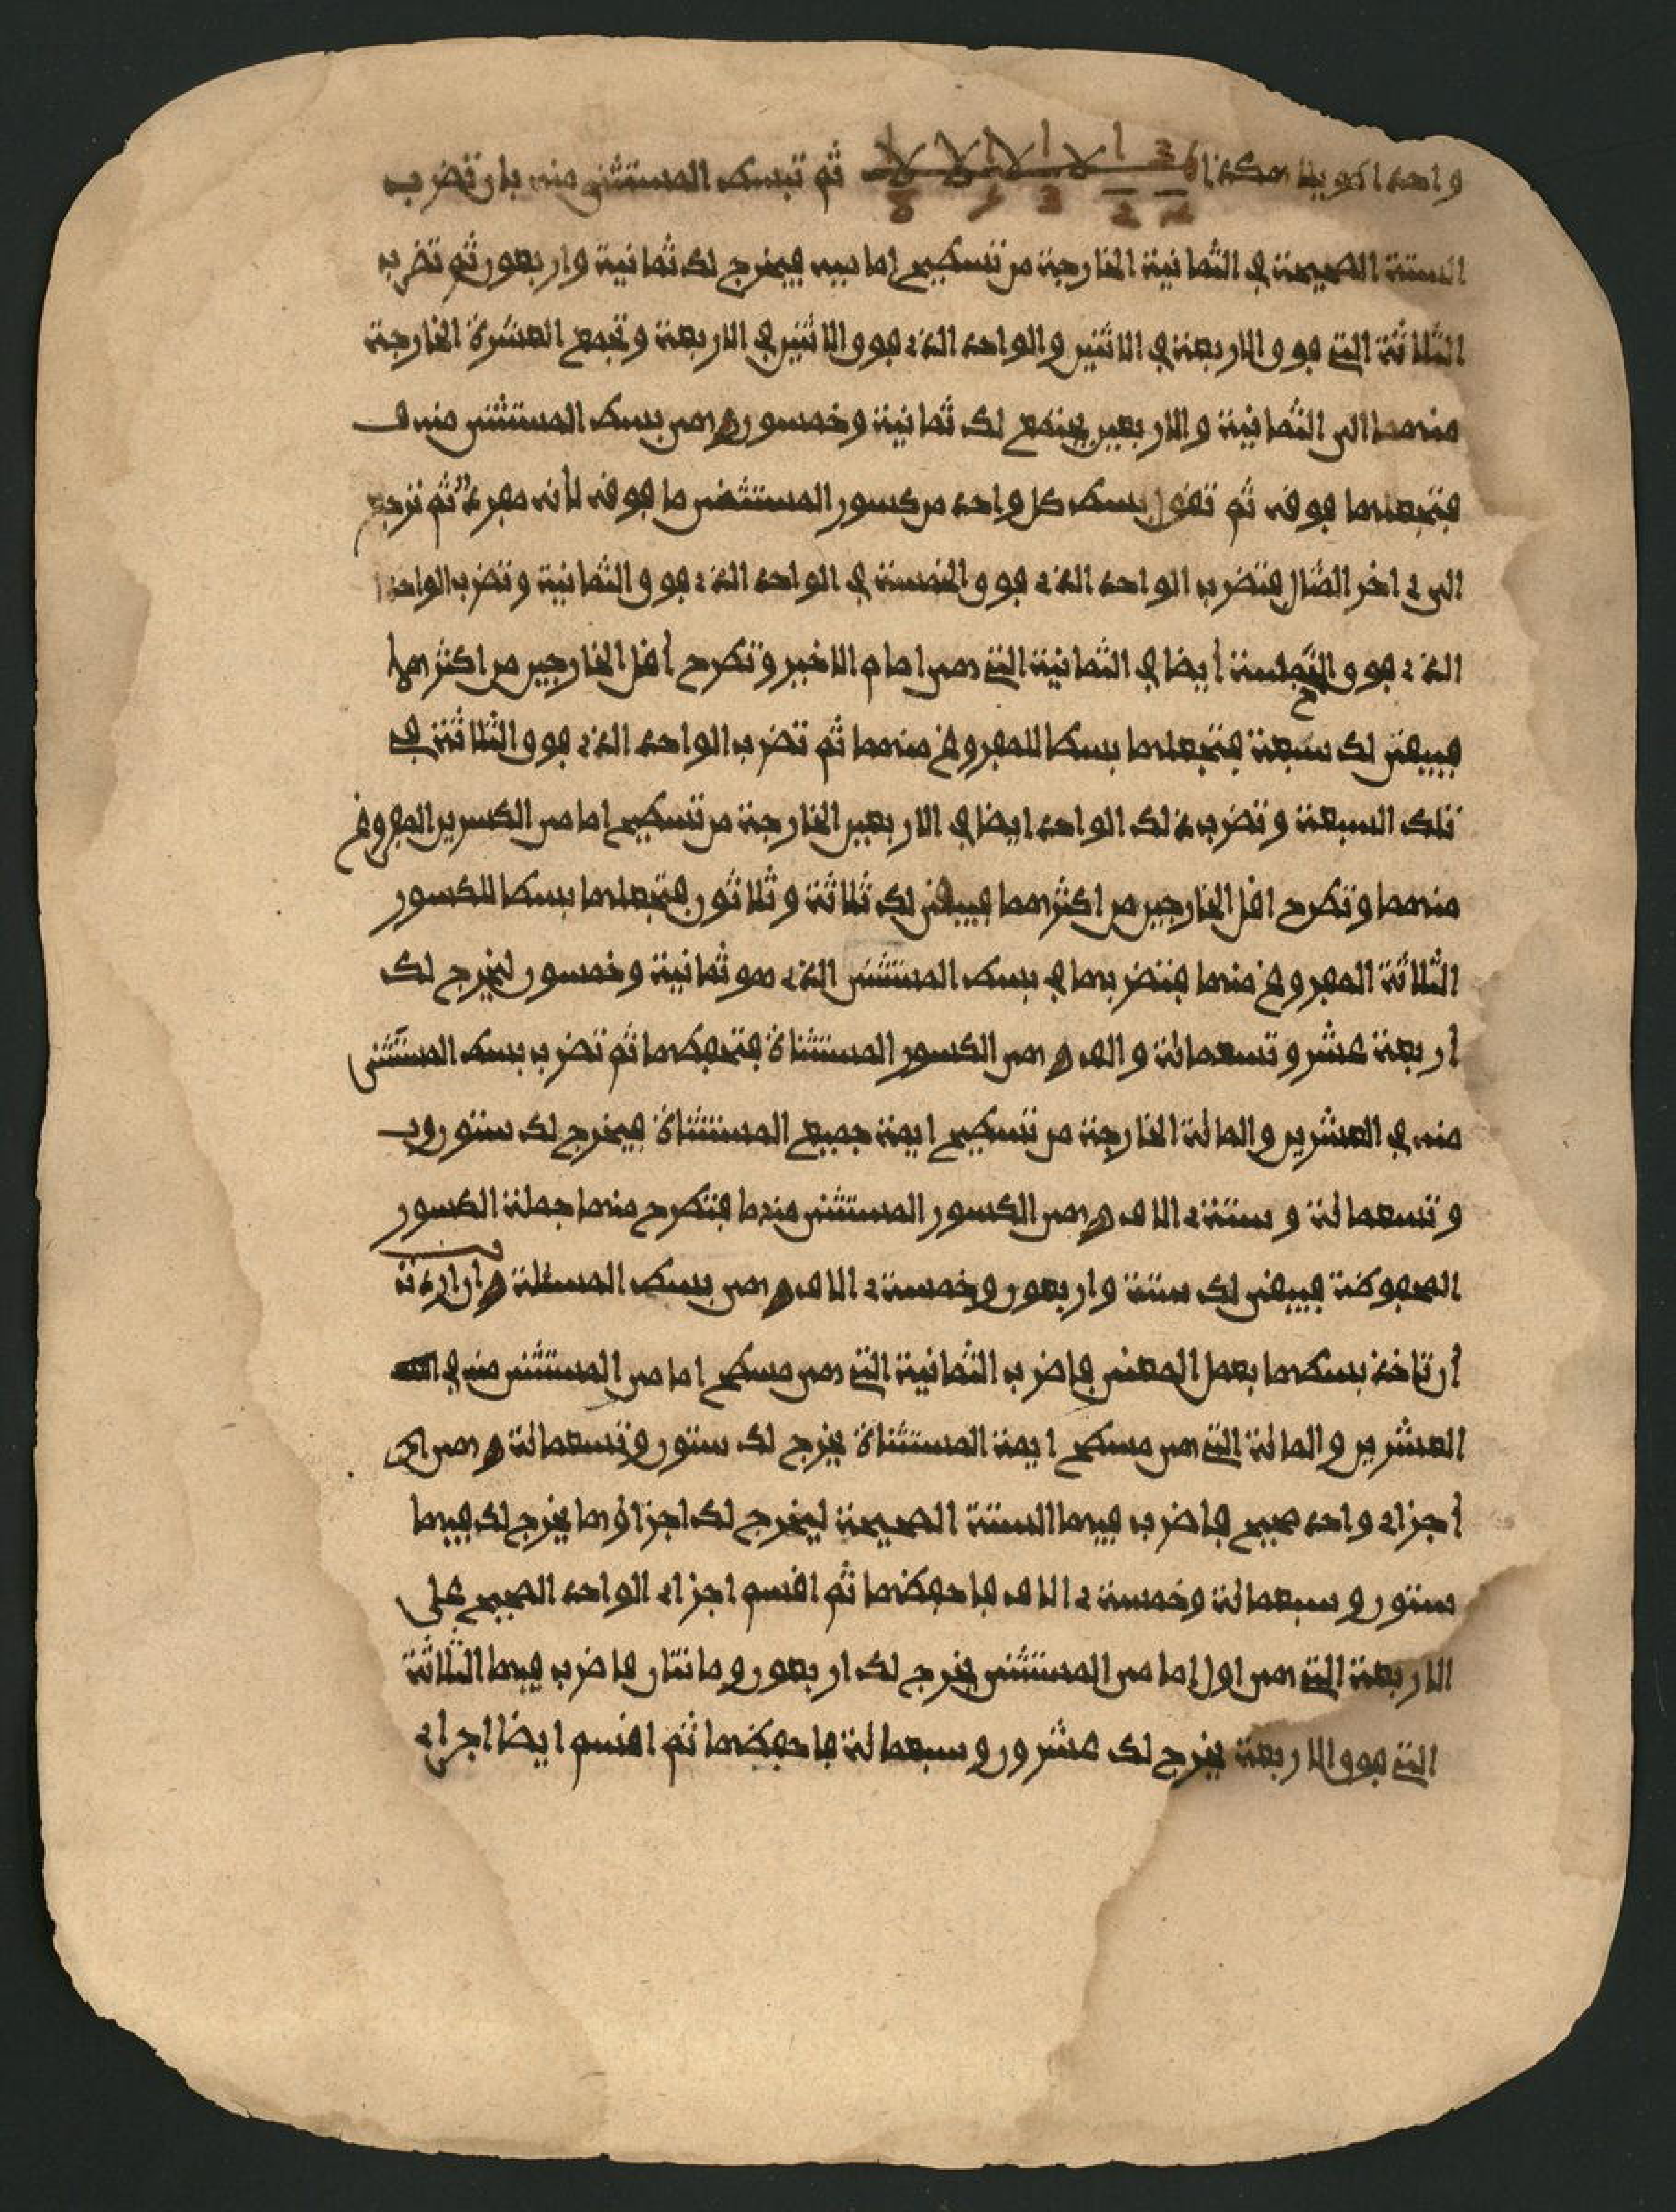 واحدا طويلا هكذا 6 3 1 1 1 1 لا لا لا لا 4 2 3 5 8 ثم تبسط المستثنى منه بان تضرب
الستة الصحيحة في الثمانية الخارجة من تسطيح اماميه فيخرج لك ثمانية واربعون ثم تضرب
الثلاثة التي فوق الاربعة في الاثنين والواحد الذي فوق الاثنين في الاربعة وتجمع العشرة الخارجة
منهما الى الثمانية والاربعين يجتمع لك ثمانية وخمسون وهي بسط المستثنى منه
فتجعلها فوقه ثم تقول بسط كل واحد من كسور المستثنى ما فوقه لانه مفرد ثم ترجع
الى اخر المثال فتضرب الواحد الذي فوق الخمسة في الواحد الذي فوق الثمانية وتضرب الواحد
الذي فوق الخمسة أيضا في الثمانية التي هي امام الاخير وتطرح أقل الخارجين من اكثرهما
فيبقى لك سبعة فتجعلها بسطا للمفروغ منهما ثم تضرب الواحد الذي فوق الثلاثة في
تلك السبعة وتضرب ذلك الواحد ايضا في الاربعين الخارجة من تسطيح امامي الكسرين المفروغ
منهما وتطرح اقل الخارجين من اكثرهما فيبقى لك ثلاثة وثلاثون فتجعلها بسطا للكسور
الثلاثة المفروغ منها فتضربها في بسط المستثنى الذي هو ثمانية وخمسون ليخرج لك
أربعة عشر وتسعمائة والف وهي الكسور المستثناة فتحفظها ثم تضرب بسط المستثنى
منه في العشرين والمائة الخارجة من تسطيح ايمة جميع المستثناة فيخرج لك ستون
وتسعمائة وستة ءالاف وهي الكسور المستثنى منها فتطرح منها جملة الكسور
المحفوظة فيبقى لك ستة واربعون وخمسة ءالاف وهي بسط المسئلة وان اردت
أن تاخذ بسطها بعمل المعنى فاضرب الثمانية التي هي مسطح امامي المستثنى منه في
العشرين والمائة التي هي مسطح ايمة المستثناة يخرج لك ستون وتسعمائة وهي
أجزاء واحد صحيح فاضرب فيها الستة الصحيحة ليخرج لك اجزاؤها يخرج لك فيها
ستون وسبعمائة وخمسة ءالاف فاحفظها ثم اقسم اجزاء الواحد الصحيح على
الاربعة التي هي اول امامي المستثنى يخرج لك اربعون ومائتان فاضرب فيها الثلاثة
التي فوق الاربعة يخرج لك عشرون وسبعمائة فاحفظها ثم اقسم ايضا اجزاء